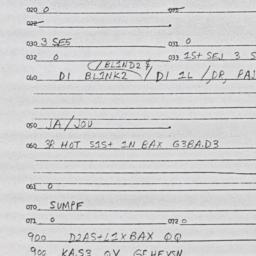 020 0
022
030 3 SES 031 0
032 0 033 1S+ SEJ 3 S
/BLIND2 &
040 DI BLINK2 / DI 1L /DP, PAJ
050 JA/JOU
060 3R HOT S1S+ 1N BAX G3BA.D3
061 0
070 SUMPF
071 0 072 0
900 D2AS+L1XBAX QQ
900 KA.S3 QV GEHEVSN